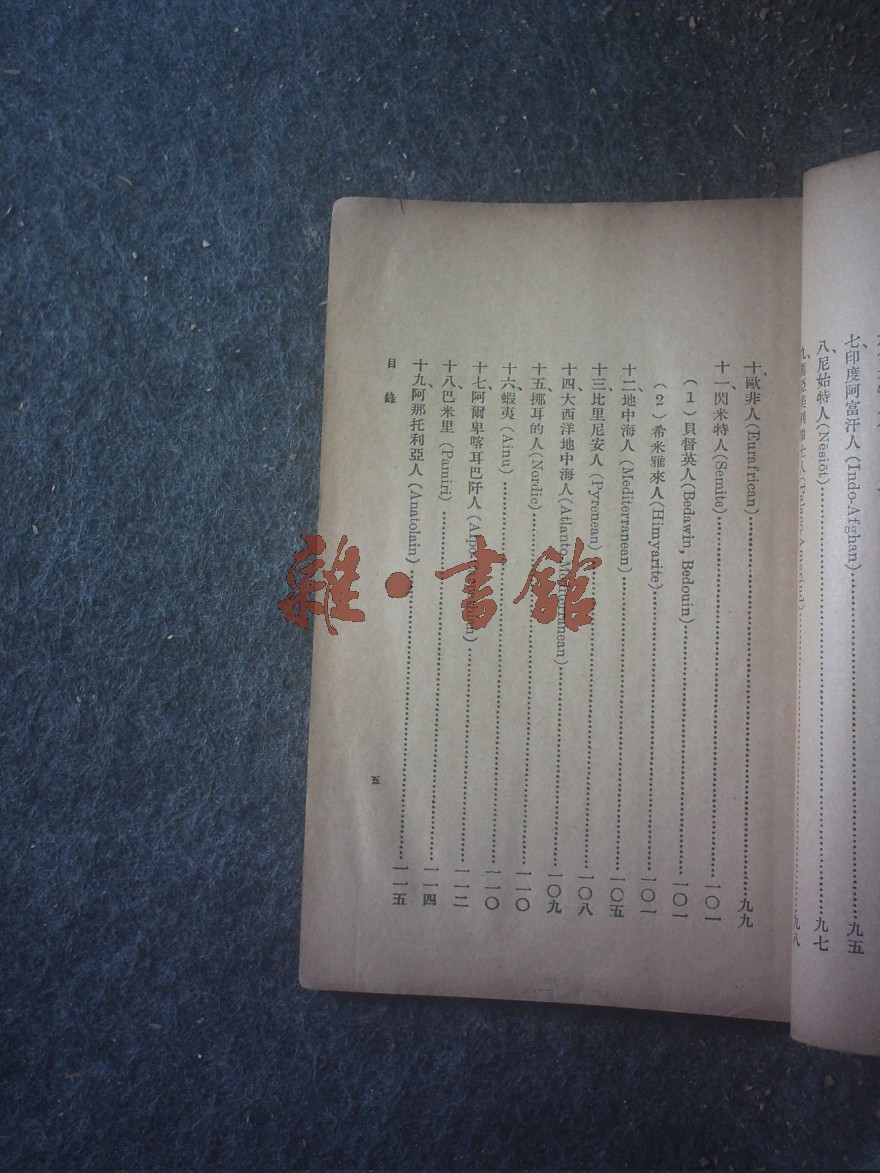 七、印度阿富汗人(Indo-Afghan)……九五
八、尼始特人(Nesiot)……九七
九八
十、歐非人(Eurafrican)……九九
十一、閃米特人(Semite)……一〇一
(1)貝督英人(Bedawin, Bedouin)……一〇一
(2)希米雅來人(Himyarite)……一〇一
十二、地中海人(Mediterranean)……一〇五
十三、比里尼安人(Pyrenean)……一〇八
十四、大西洋地中海人(Atlanto-Mediterranean)……一〇九
十五、挪耳的人(Nordic)……一一〇
十六、蝦夷(Ainu)……一一〇
十七、阿爾卑喀耳巴阡人……一一二
十八、巴米里(Pamiri)……一一四
十九、阿那托利亞人(Anatolain)……一一五
目錄
五
雜·書館